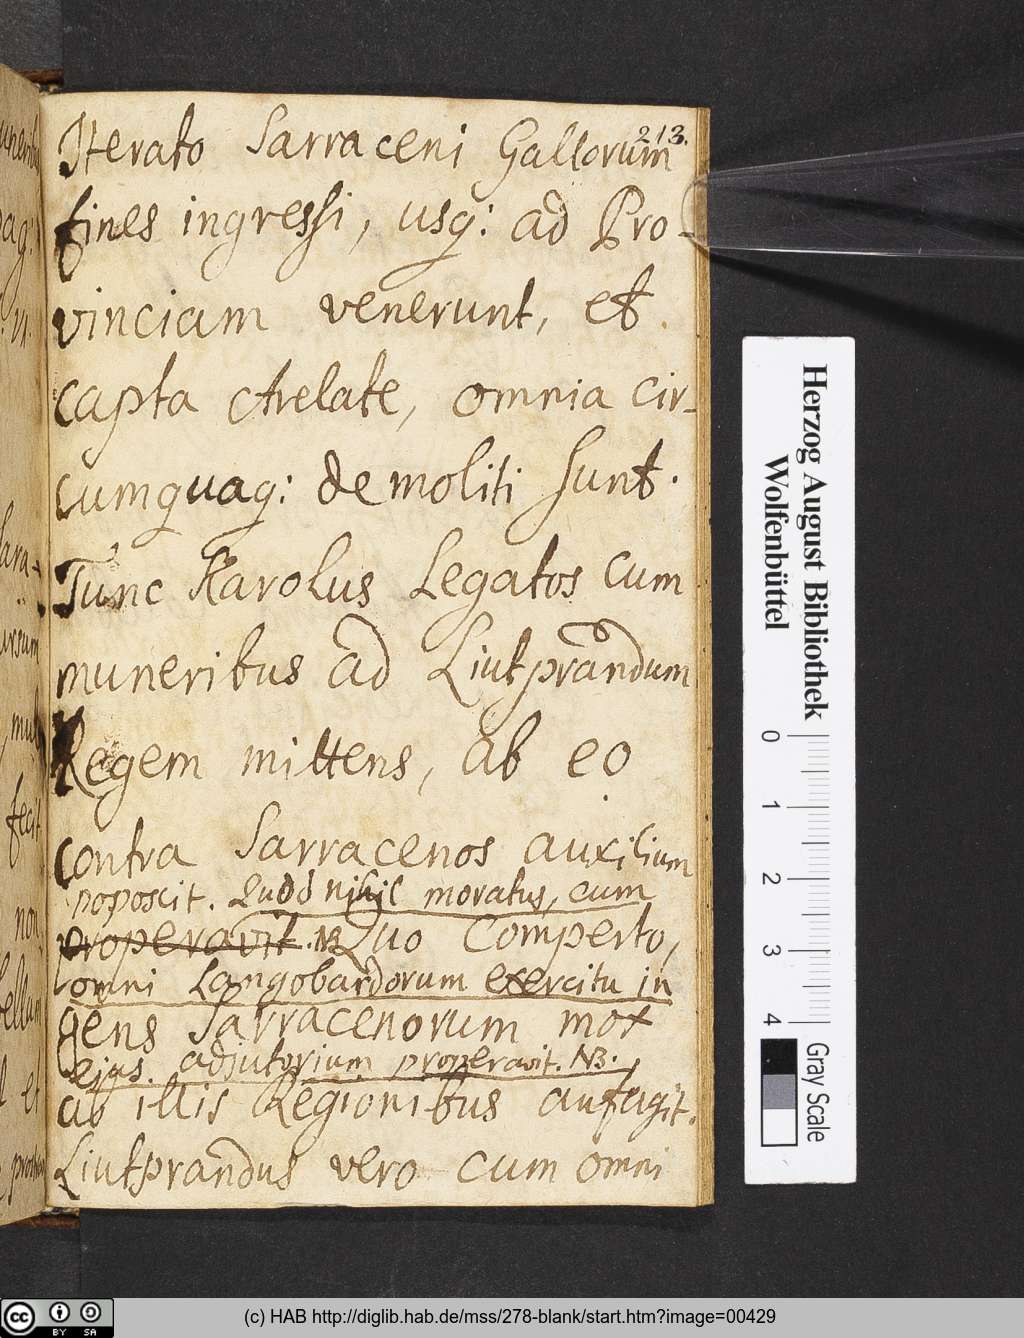 213.
Iterato Sarraceni Gallorum
fines ingressi, usq: ad Pro-
vinciam venerunt, et
capta Arelate, omnia cir-
cumquaq: demoliti sunt.
Tunc Karolus Legatos cum
muneribus ad Liutprandum
Regem mittens, ab eo
contra Sarracenos auxilium
poposcit. Quod nihil moratus, cum
properavit. NB Quo Comperto,
omni Langobardorum exercitu in
gens Sarracenorum mox
ejus adjutorium properavit. NB.
ab illis Regionibus aufugit.
Liutprandus vero cum omni
Herzog August Bibliothek
Wolfenbüttel
0 1 2 3 4
Gray Scale
cc BY SA
(c) HAB http://diglib.hab.de/mss/278-blank/start.htm?image=00429